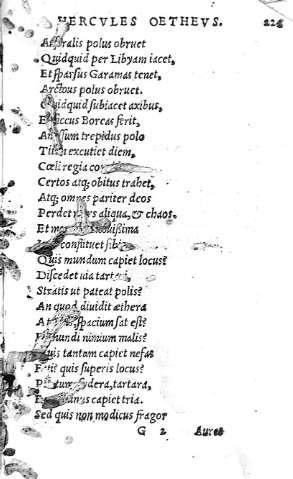 HERCVLES OETHEVS.
polus obruet
Quidquid per Libyam iacet,
Et sparsus Garamas tenet,
Arctous polus obruet.
Quidquid subiacet axibus,
siccus Boreas ferit,
trepidus polo
excutiet diem,
Cœli regia
Certos atq; obitus trahet,
Atq; omnes pariter deos
Perdet aliqua, & chaos.
Et
constituet sibi
Quis mundum capiet locus?
Discedet uia
Stratis ut pateat polis?
An quod diuidit æthera
spacium sat est?
mundi nimium malis?
Quis tantum capiet nefas
quis superis locus?
sydera, tartara,
capiet tria.
Sed quis non modicus fragor
G 2 Aures